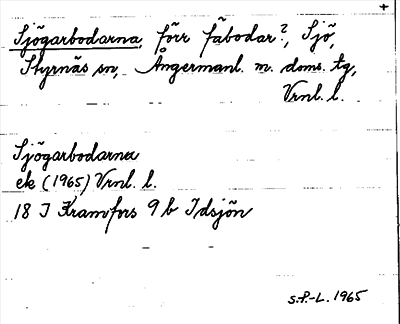 +
Sjögarbodarna, förr fäbodar?, Sjö,
Styrnäs sn, Ångermanl. m. doms. tg,
Vrnl. l.
Sjögarbodarna
ek (1965) Vrnl. l.
18 I Kramfors 9 b Idsjön
S.P.-L. 1965